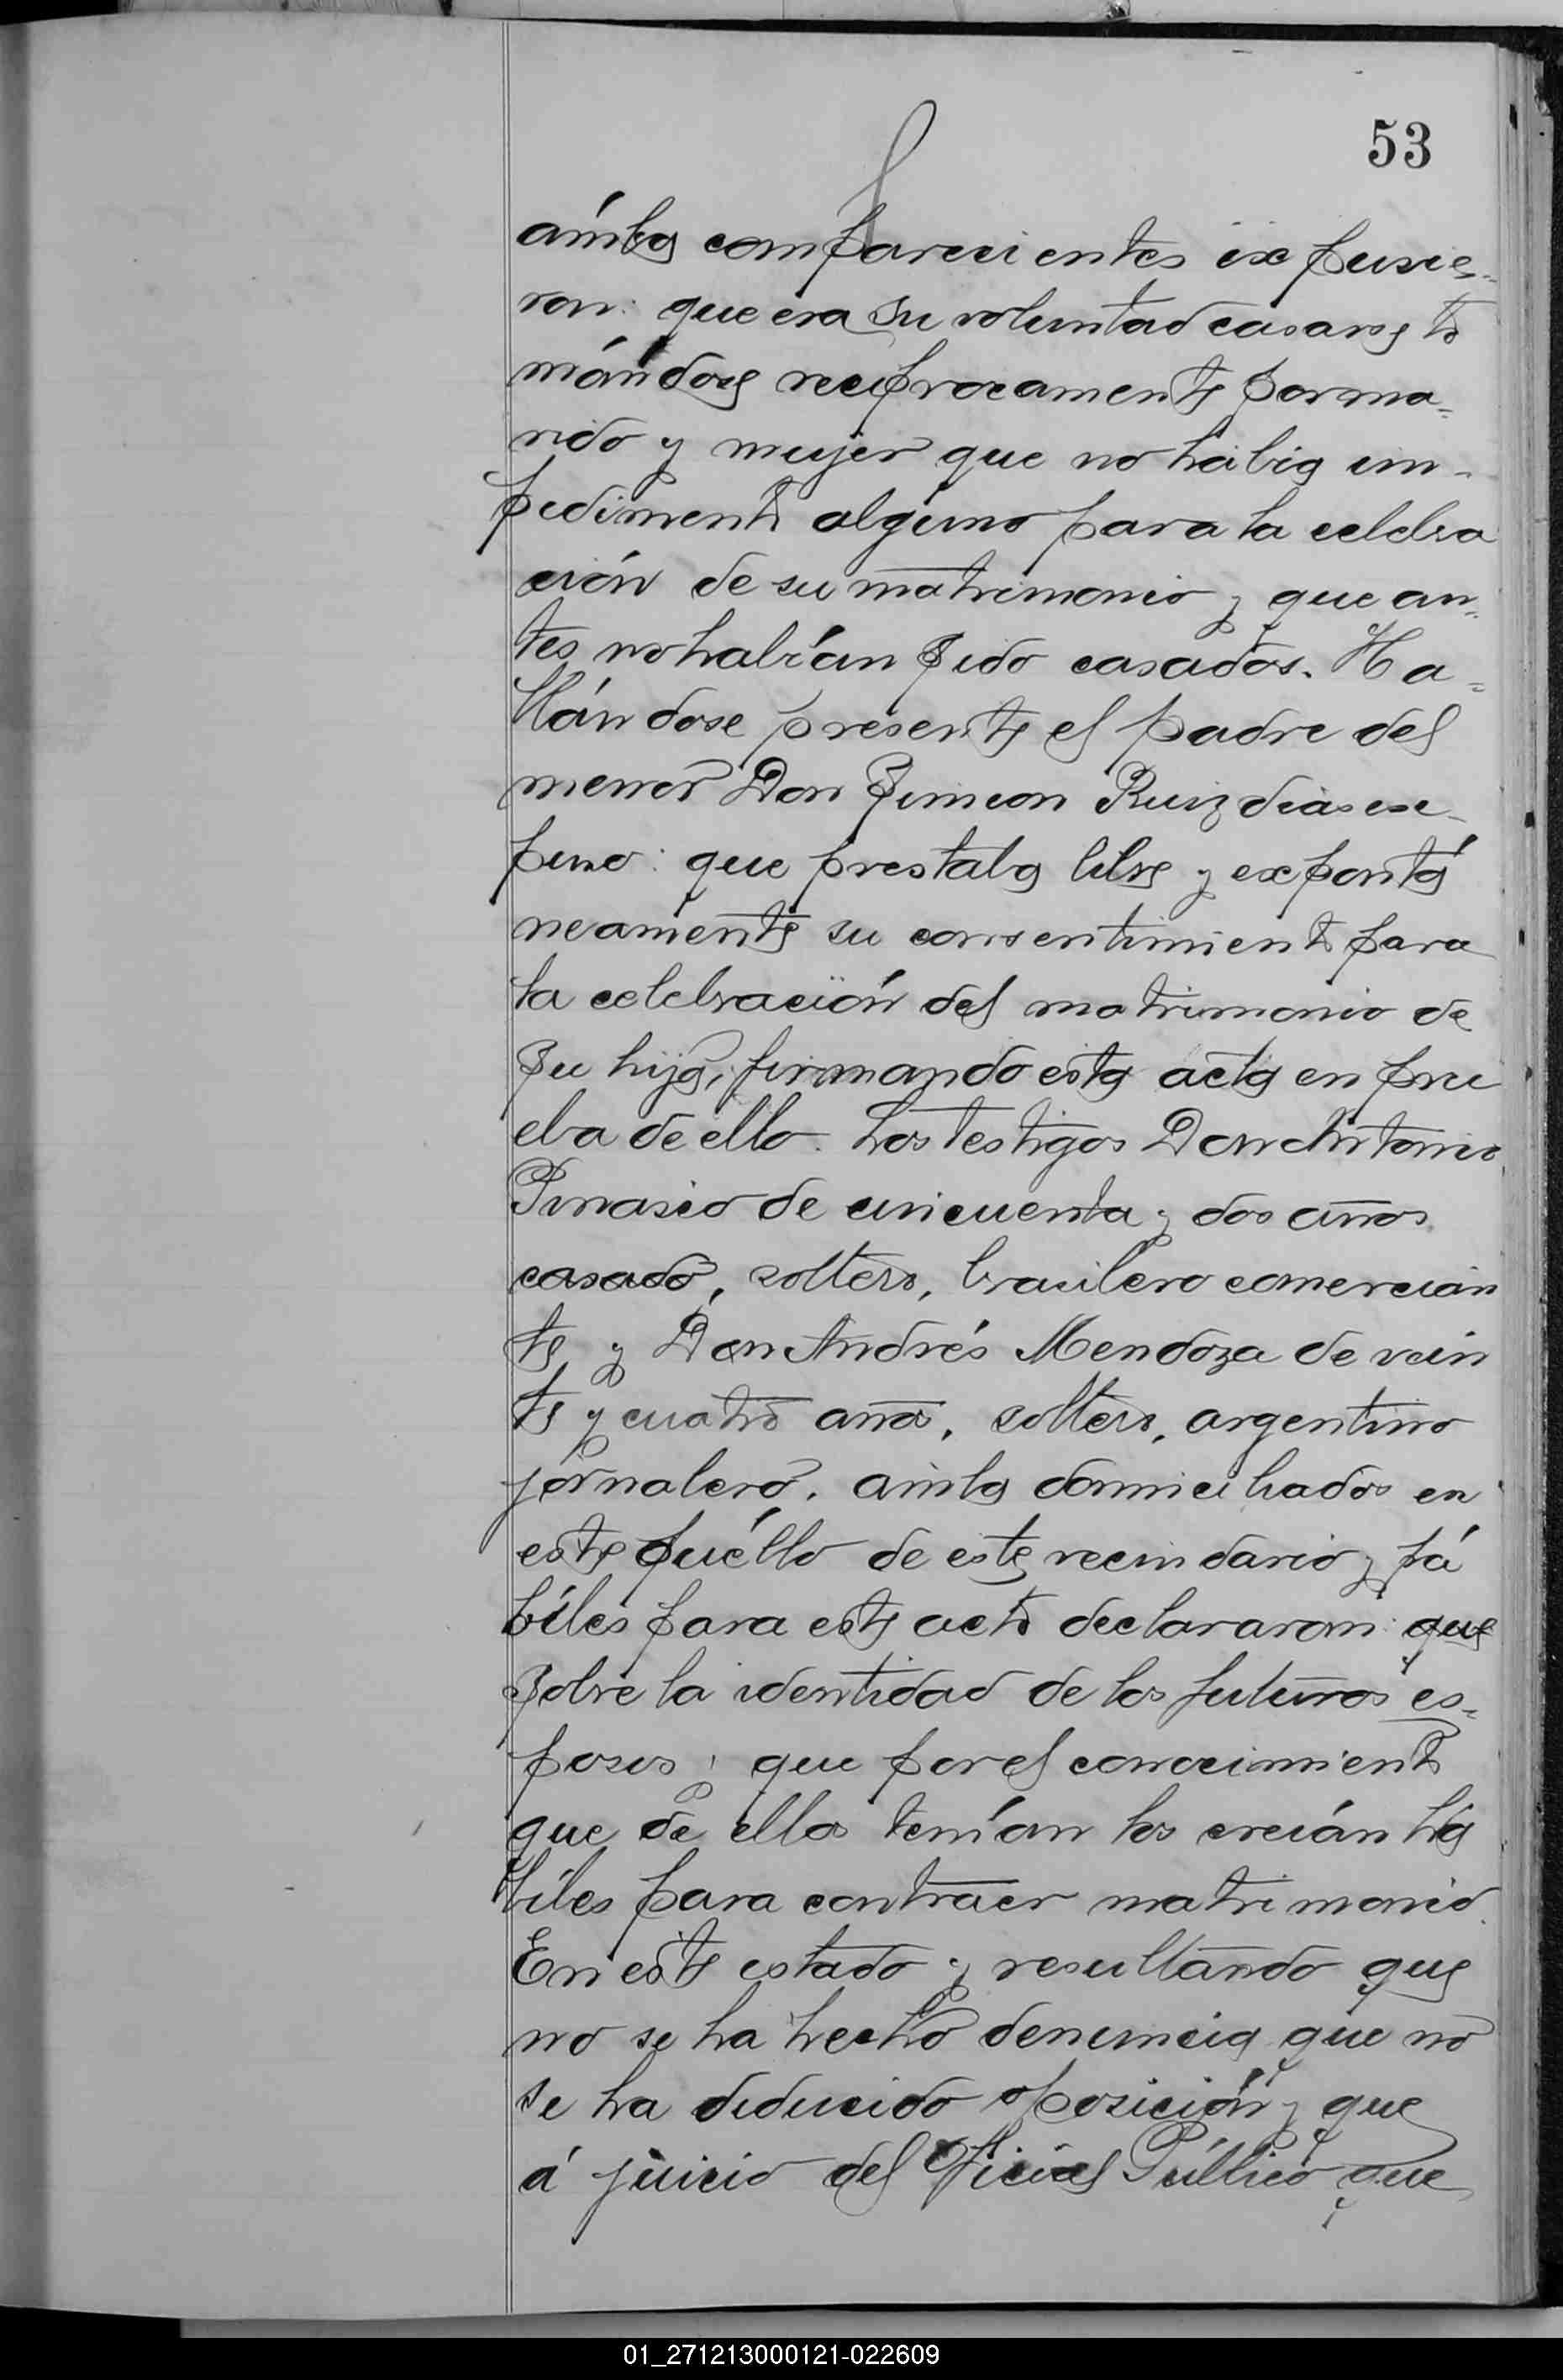 53
ámbos comparecientes expusie-
ron: que era su voluntad casarse to
mándose reciprocamente por ma-
rido y mujer que no habia im-
pedimento alguno para la celebra
ción de su matrimonio y que an-
tes no habían sido casados. Ha-
llándose presente el padre del
menor Don Simeon Ruiz dias ex-
puso: que prestaba libre y expontá
neamente su consentimiento para
la celebración del matrimonio de
su hijo, firmando esta acta en pru
eba de ello. Los testigos Don Antonio
de cincuenta y dos años
casado, soltero, brasilero comercian
te, y Don Andrés Mendoza de vein
te y cuatro años, soltero, argentino
jornalero, ambos domiciliados en
este pueblo de este vecindario y há
biles para este acto declararon: que
sobre la identidad de los futuros es-
posos y que por el conocimiento
que de ellos tenían los creían há
biles para contraer matrimonio.
En este estado y resultando que
no se ha hecho denuncia que no
se ha deducido oposición y que
á juicio del Oficial Público que
01_271213000121-022609